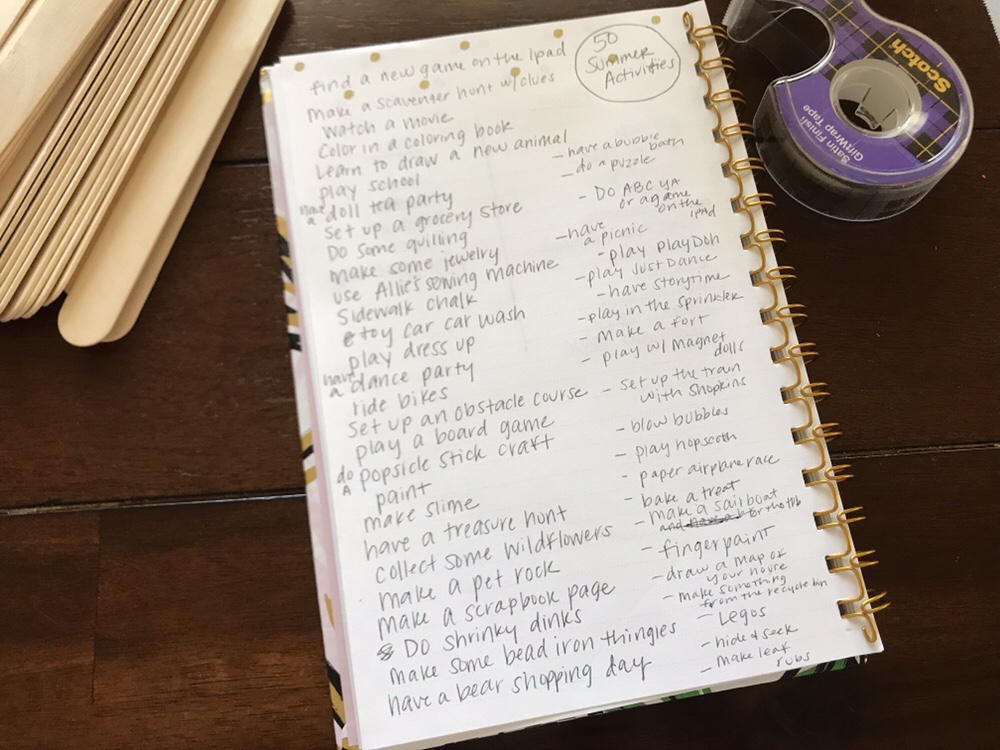 50
Summer
Activities
find a new game on the ipad
make a scavenger hunt w/clues
watch a movie
color in a coloring book
Learn to draw a new animal
play school
have a doll tea party
set up a grocery store
Do some quilling
make some jewelry
use Allie's sewing machine
Sidewalk chalk
toy car car wash
play dress up
have a dance party
ride bikes
set up an obstacle course
play a board game
do a popsicle stick craft
paint
make slime
have a treasure hunt
collect some wildflowers
make a pet rock
make a scrapbook page
DO shrinky dinks
make some bead iron thingies
have a bear shopping day
- have a bubble
bath
- do a puzzle
- DO ABC YA
or a game
on the
ipad
- have
a picnic
- play play Doh
- play Just Dance
- have storytime
- play in the sprinkler
- make a fort
- play w/ magnet
dolls
- set up the train
with Shopkins
- blow bubbles
- play hopscoth
- paper airplane race
- bake a treat
- make a sail boat
for the tub
- fingerpaint
- draw a map of
your house
- make something
from the recycle bin
- Legos
- hide & seek
- make leaf
rubs
Scotch
Satin Finish
GiftWrap Tape